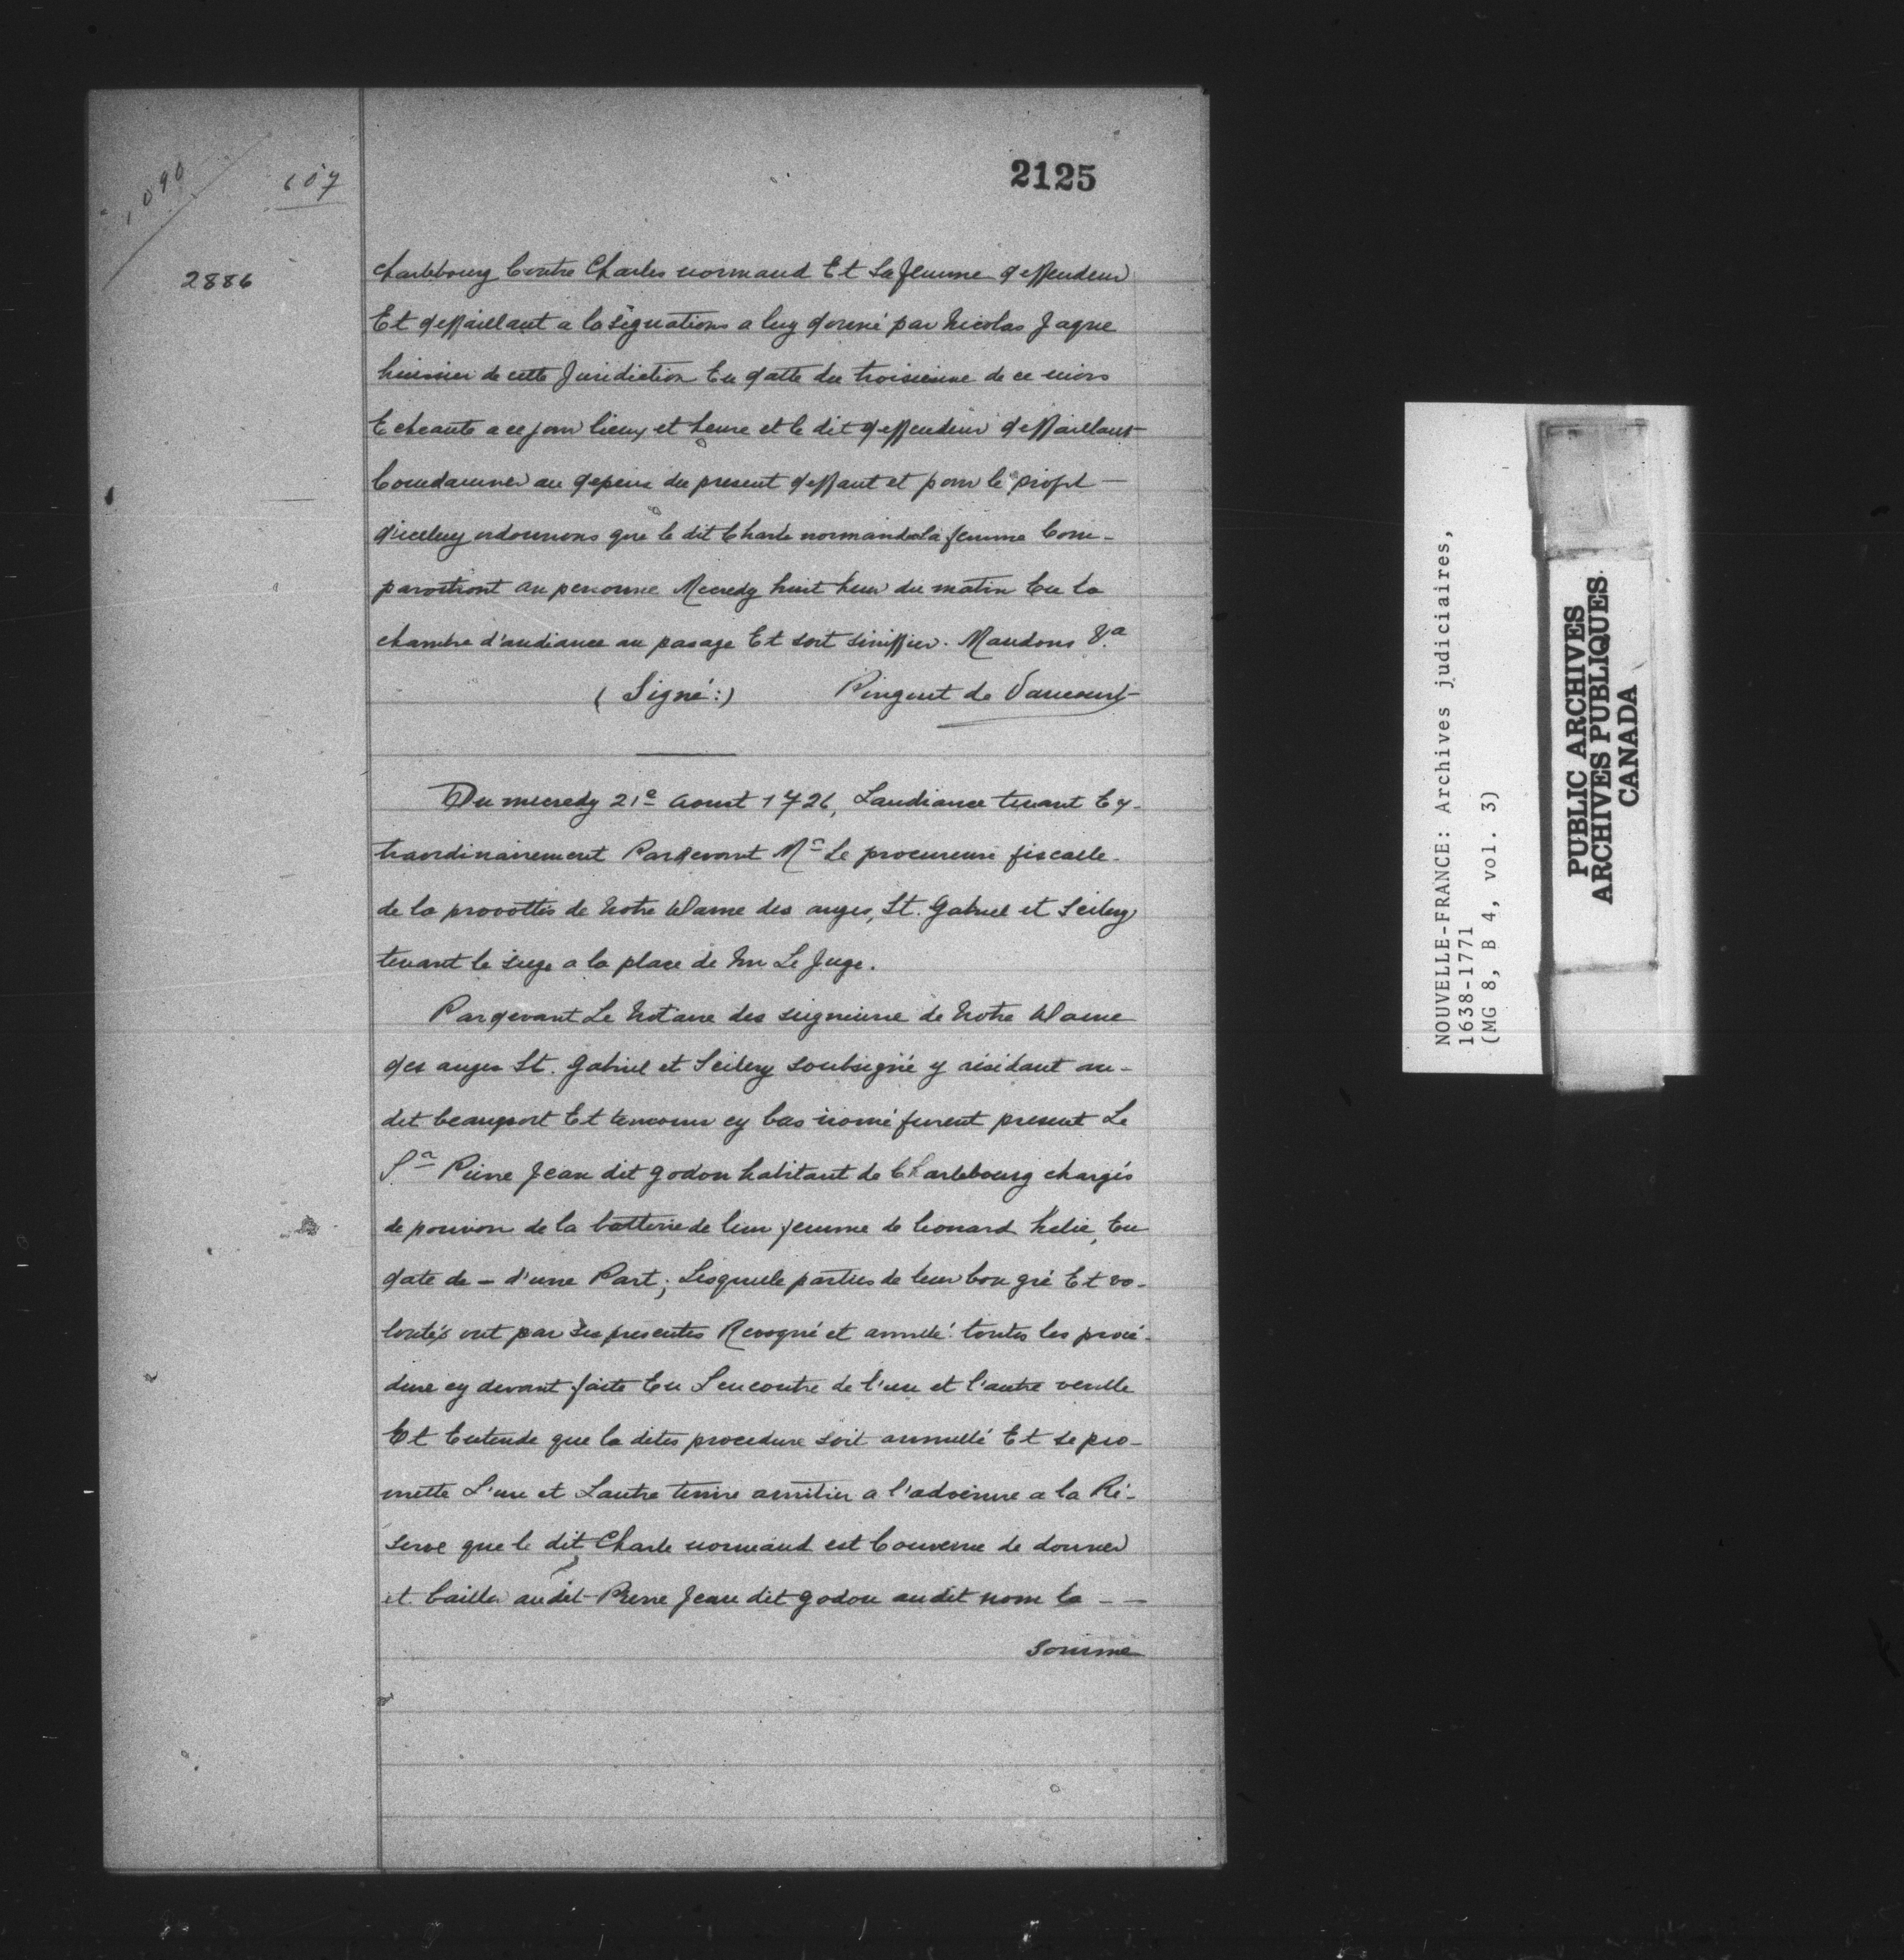 2125
1090
607
2886
charlebourg Contre Charles normand Et Sa femme deffendeur
Et deffaillant a lasignations a luy donné par Nicolas Jaque
huissier de cette Juridiction En datte du troisieme de ce mois
Echeante a ce jour lieux et heure et le dit deffendeur deffaillant
Condamner au depens du present deffaut et pour le profit —
d'iceluy ordonnons que le dit Charle normand et la femme Com-
paroitront an personne Mecredy huit heur du matin En la
chambre d'audiance au pasage Et soit siniffier. Mandons &a
(Signé:) Pinguet de Vaucourt
Du mecredy 21e Aoust 1726, Laudiance tenant Ex-
traordinairement Pardevant Mr Le procureure fiscalle
de la provottés de Notre Dame des anges, St. Gabriel et Seilery
tenant le siege a la place de Mr Le Juge.
Pardevant Le Notaire des seigneurie de Notre Dame
des anges St. Gabriel et Seilery soubsigné y résidant au-
dit beauport Et temouns cy bas nomé furent present Le
Sr Pierre Jean dit godon habitant de Charlebourg chargés
de pouvoir de la batterie de leur femme de leonard helie, En
date de — d'une Part; Lesquelle parties de leur bon gré Et vo-
lontés ont par ses presentes Revogné et annullé toutes les procé-
dure cy devant faite En Lencontre de l'un et l'autre veulle
Et Entende que la dites procedure soit annullé Et se pro-
mette L'un et Lautre tenire amitier a l'advenire a la Ré-
serve que le dit Charle normand est Convenue de donner
et bailler audit Pierre Jean dit godon audit nom la — —
somme
NOUVELLE-FRANCE: Archives judiciaires,
1638-1771
(MG 8, B 4, vol. 3)
PUBLIC ARCHIVES
ARCHIVES PUBLIQUES
CANADA